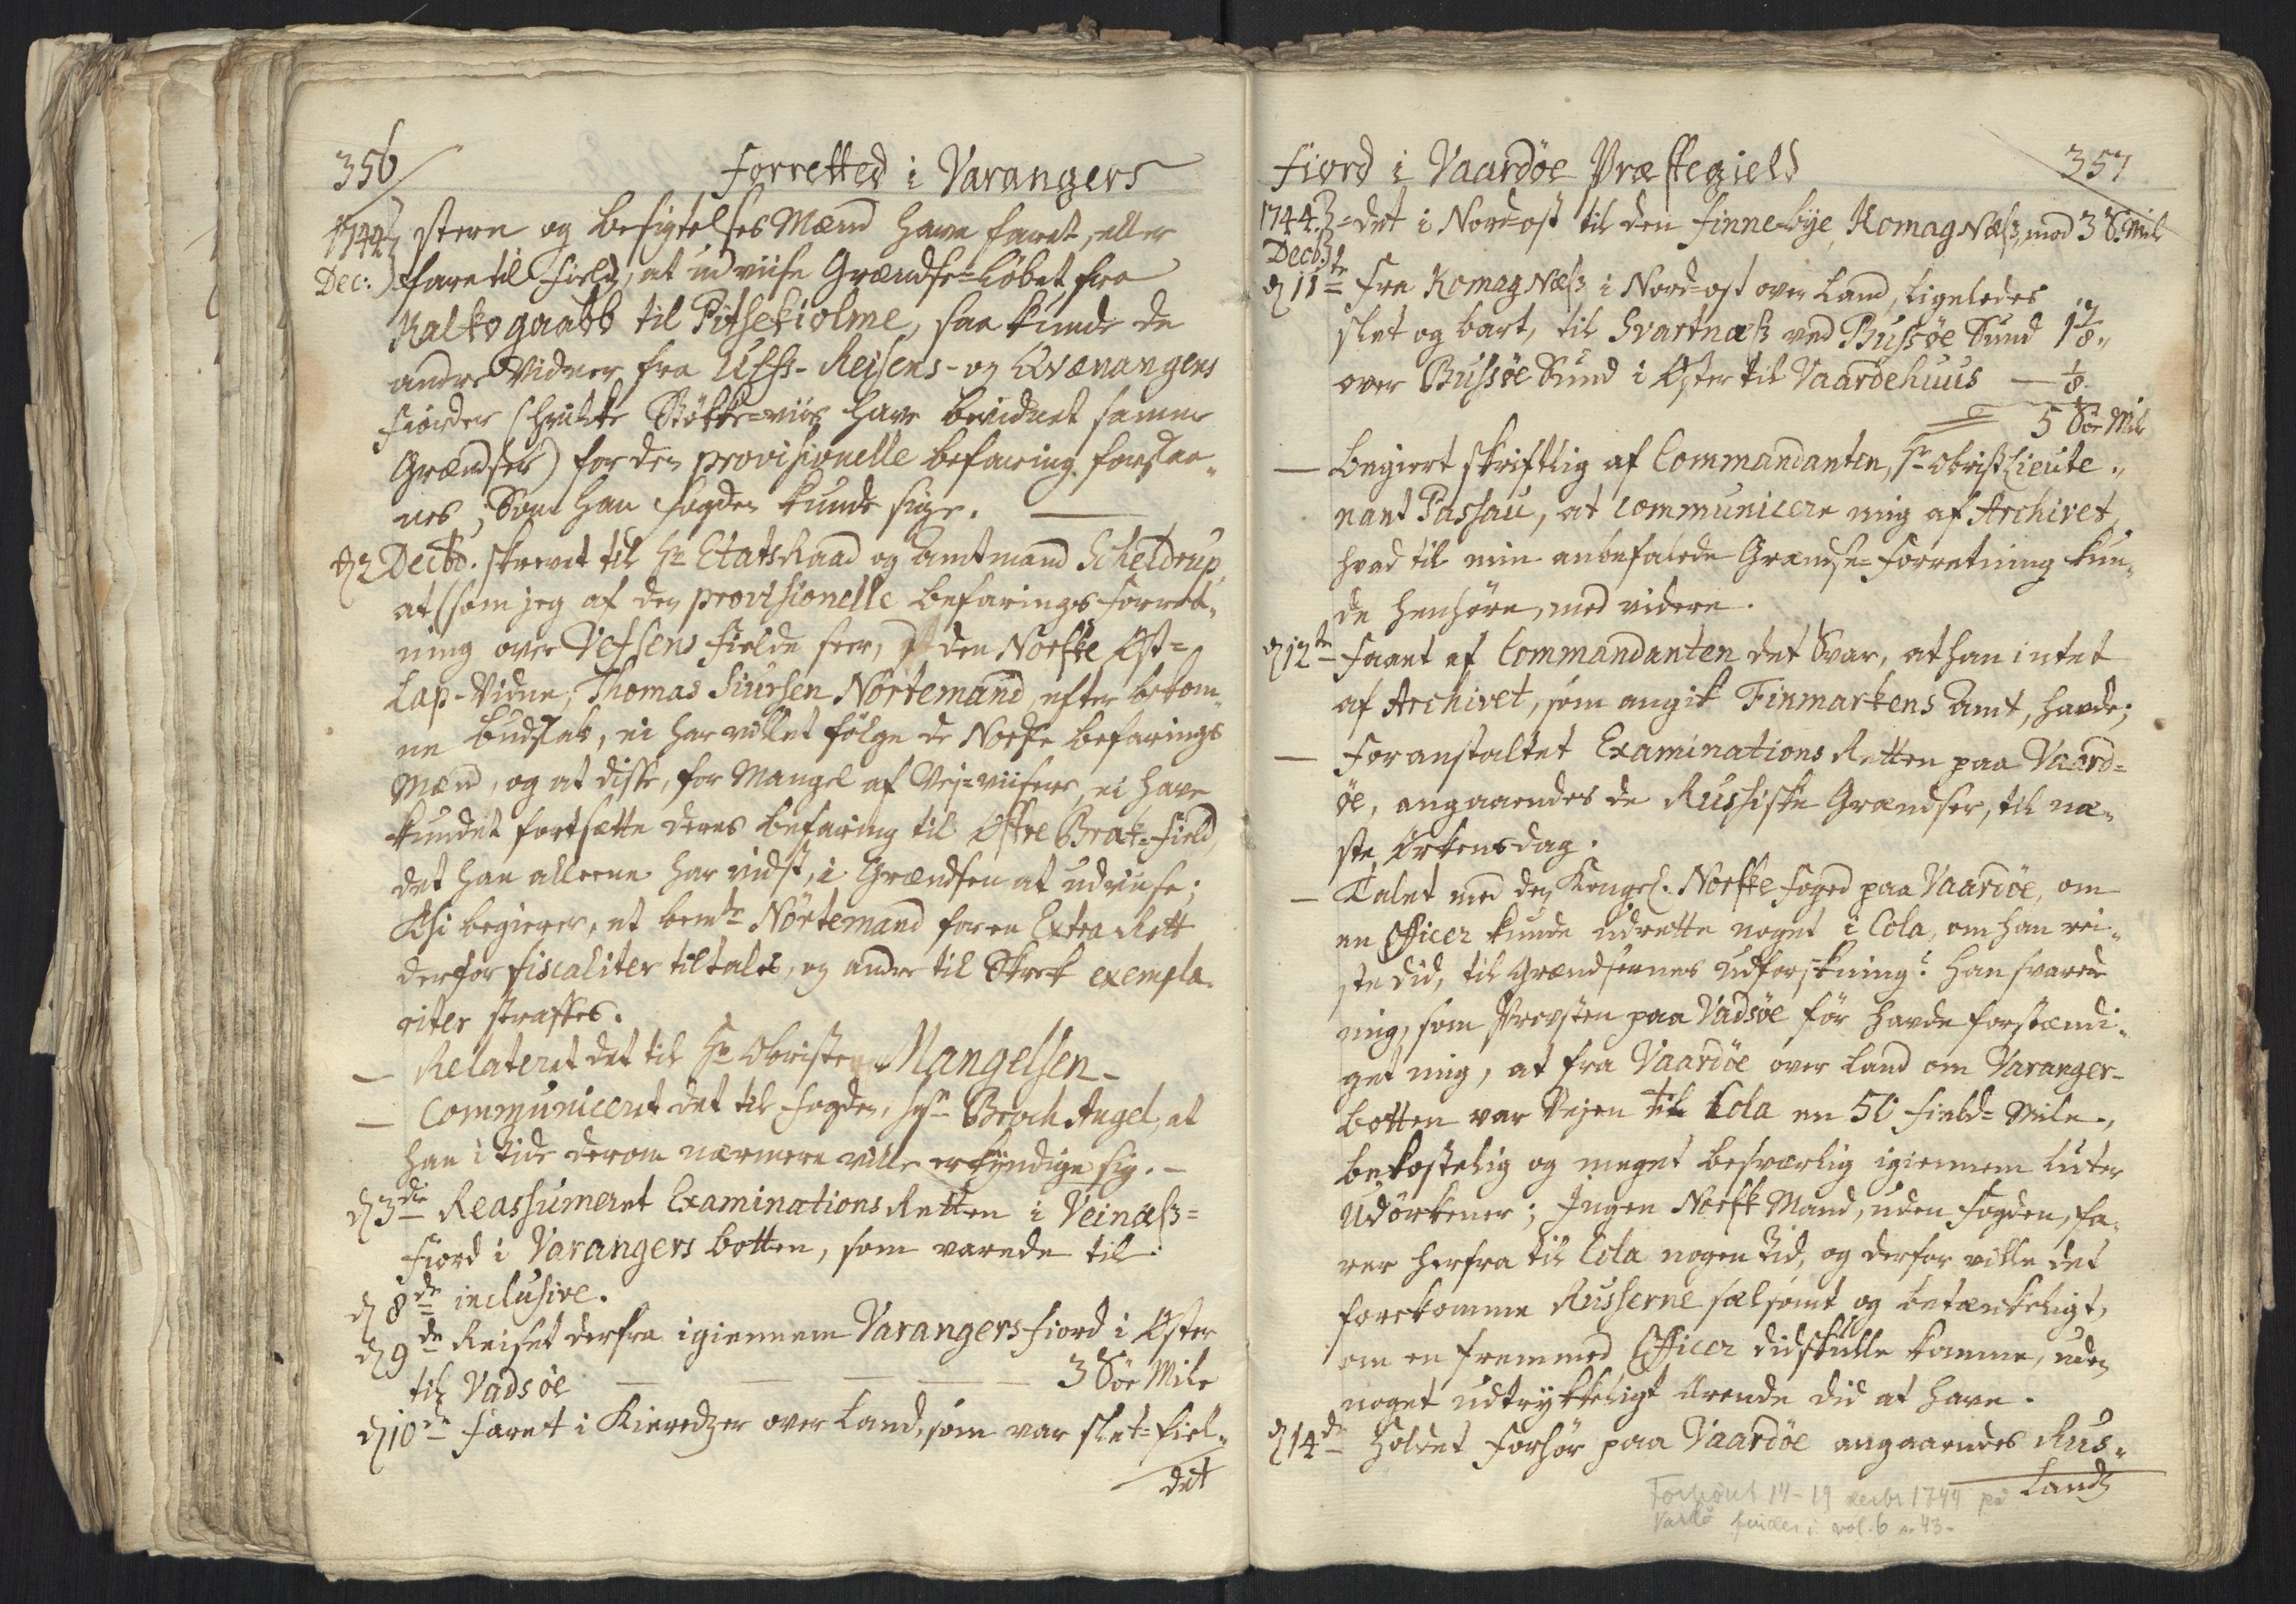 356
Forretted i Varangers
1744 stern og besigtelses Mænd have faret, eller
Dec: fare til Fields, at udviise Grændse-Løbet fra
Kalkogaabb til Pitsekiolme, saa kunde de
andre Vidner fra Ulfs- Reisens- og Qvænangens
Fiorder (hvilke Støkke-viis have bevidnet samme
Grændser) for den provisionelle befaring forskaa-
nes, Som han Fogden kunde sige.
d 2 Decbr. skrevet til Hr EtatsRaad og Amtmand Scheldrup,
at (som jeg af den provisionelle befarings Forret-
ning over Vefsens Fielde seer, at den Norske Øst-
Lap-Vidne, Thomas Siursen Nørtemand, efter bekom-
ne budskab, ei har villet følge de Norske befarings
Mænd, og at disse, for Mangel af Vej-viisere, ei have
kundet fortsætte deres befaring til Østre Brak-Field,
det han alleene har vidst, i Grændsen at udviise;
Thi begierer, at bemte Nørtemand for en Extra Rett
derfor fiscaliter tiltales, og andre til Skrek exempla-
riter straffes.
— Relateret det til Hr Obristen Mangelsen.
— Communiceret det til Fogden, Sr Broch Angel, at
han i Tide derom nærmere ville erkyndige sig. —
d 3die Reassumeret Examinations Retten i Veinæss-
Fiord i Varangers botten, som varede til
d 8de inclusive.
d 9de Reiset derfra igiennem Varangers Fiord i Øster
til Vadsøe — — — — 3 Søe Mile
d 10de Faret i Kieredzer over Land, som var slet-Fiel-
det
Fiord i Vaardøe Præstegield
357
1744. det i Nord-ost til den Finne-bye, KomagNæss, mod 3 S: Mile
Decb:
d 11te Fra KomagNæss i Nord-ost over Land, ligeledes
slet og bart, til Svartnæss ved Bussøe Sund 1 7/8
over Bussøe Sund i Øster til Vaardehuus — 1/8
5 Søe Mile
— Begiert skriftlig af Commandanten, Hr ObristLieute-
nant Passau, at communicere mig af Archivet,
hvad til min anbefalede Grændse-Forretning kun-
de henhøre, med videre.
d 12te Faaet af Commandanten det Svar, at han intet
af Archivet, som angik Finmarkens Amt, havde;
— Foranstaltet Examinations Retten paa Vaard-
øe, angaaendes de Russiske Grændser, til næ-
steØrkensdag.
— Talet med den Kongel. Norske Foged paa Vaardøe, om
en Officer kunde udrette noget i Cola, om han rei-
ste did, til Grændsernes Udforskning? han svarede
mig, som Provsten paa Vadsøe før havde forstændi-
get mig, at fra Vaardøe over Land om Varanger-
botten var Vejen til Cola en 50 Field-Mile,
bekostelig og meget besværlig igiennem luter
Udørkener; Ingen Norsk Mand, uden Fogden, fa-
rer herfra til Cola nogen Tid, og derfor ville det
forekomme Russerne sælsomt og betænkeligt,
om en fremmed Officer did skulle komme, uden
noget udtrykkeligt Ærende did at have.
d 14de Holdet Forhør paa Vaardøe angaaendes Rus-
Lands
Forhøret 14-19 decbr 1744 på
Vardø findes i vol. 6 n. 43.